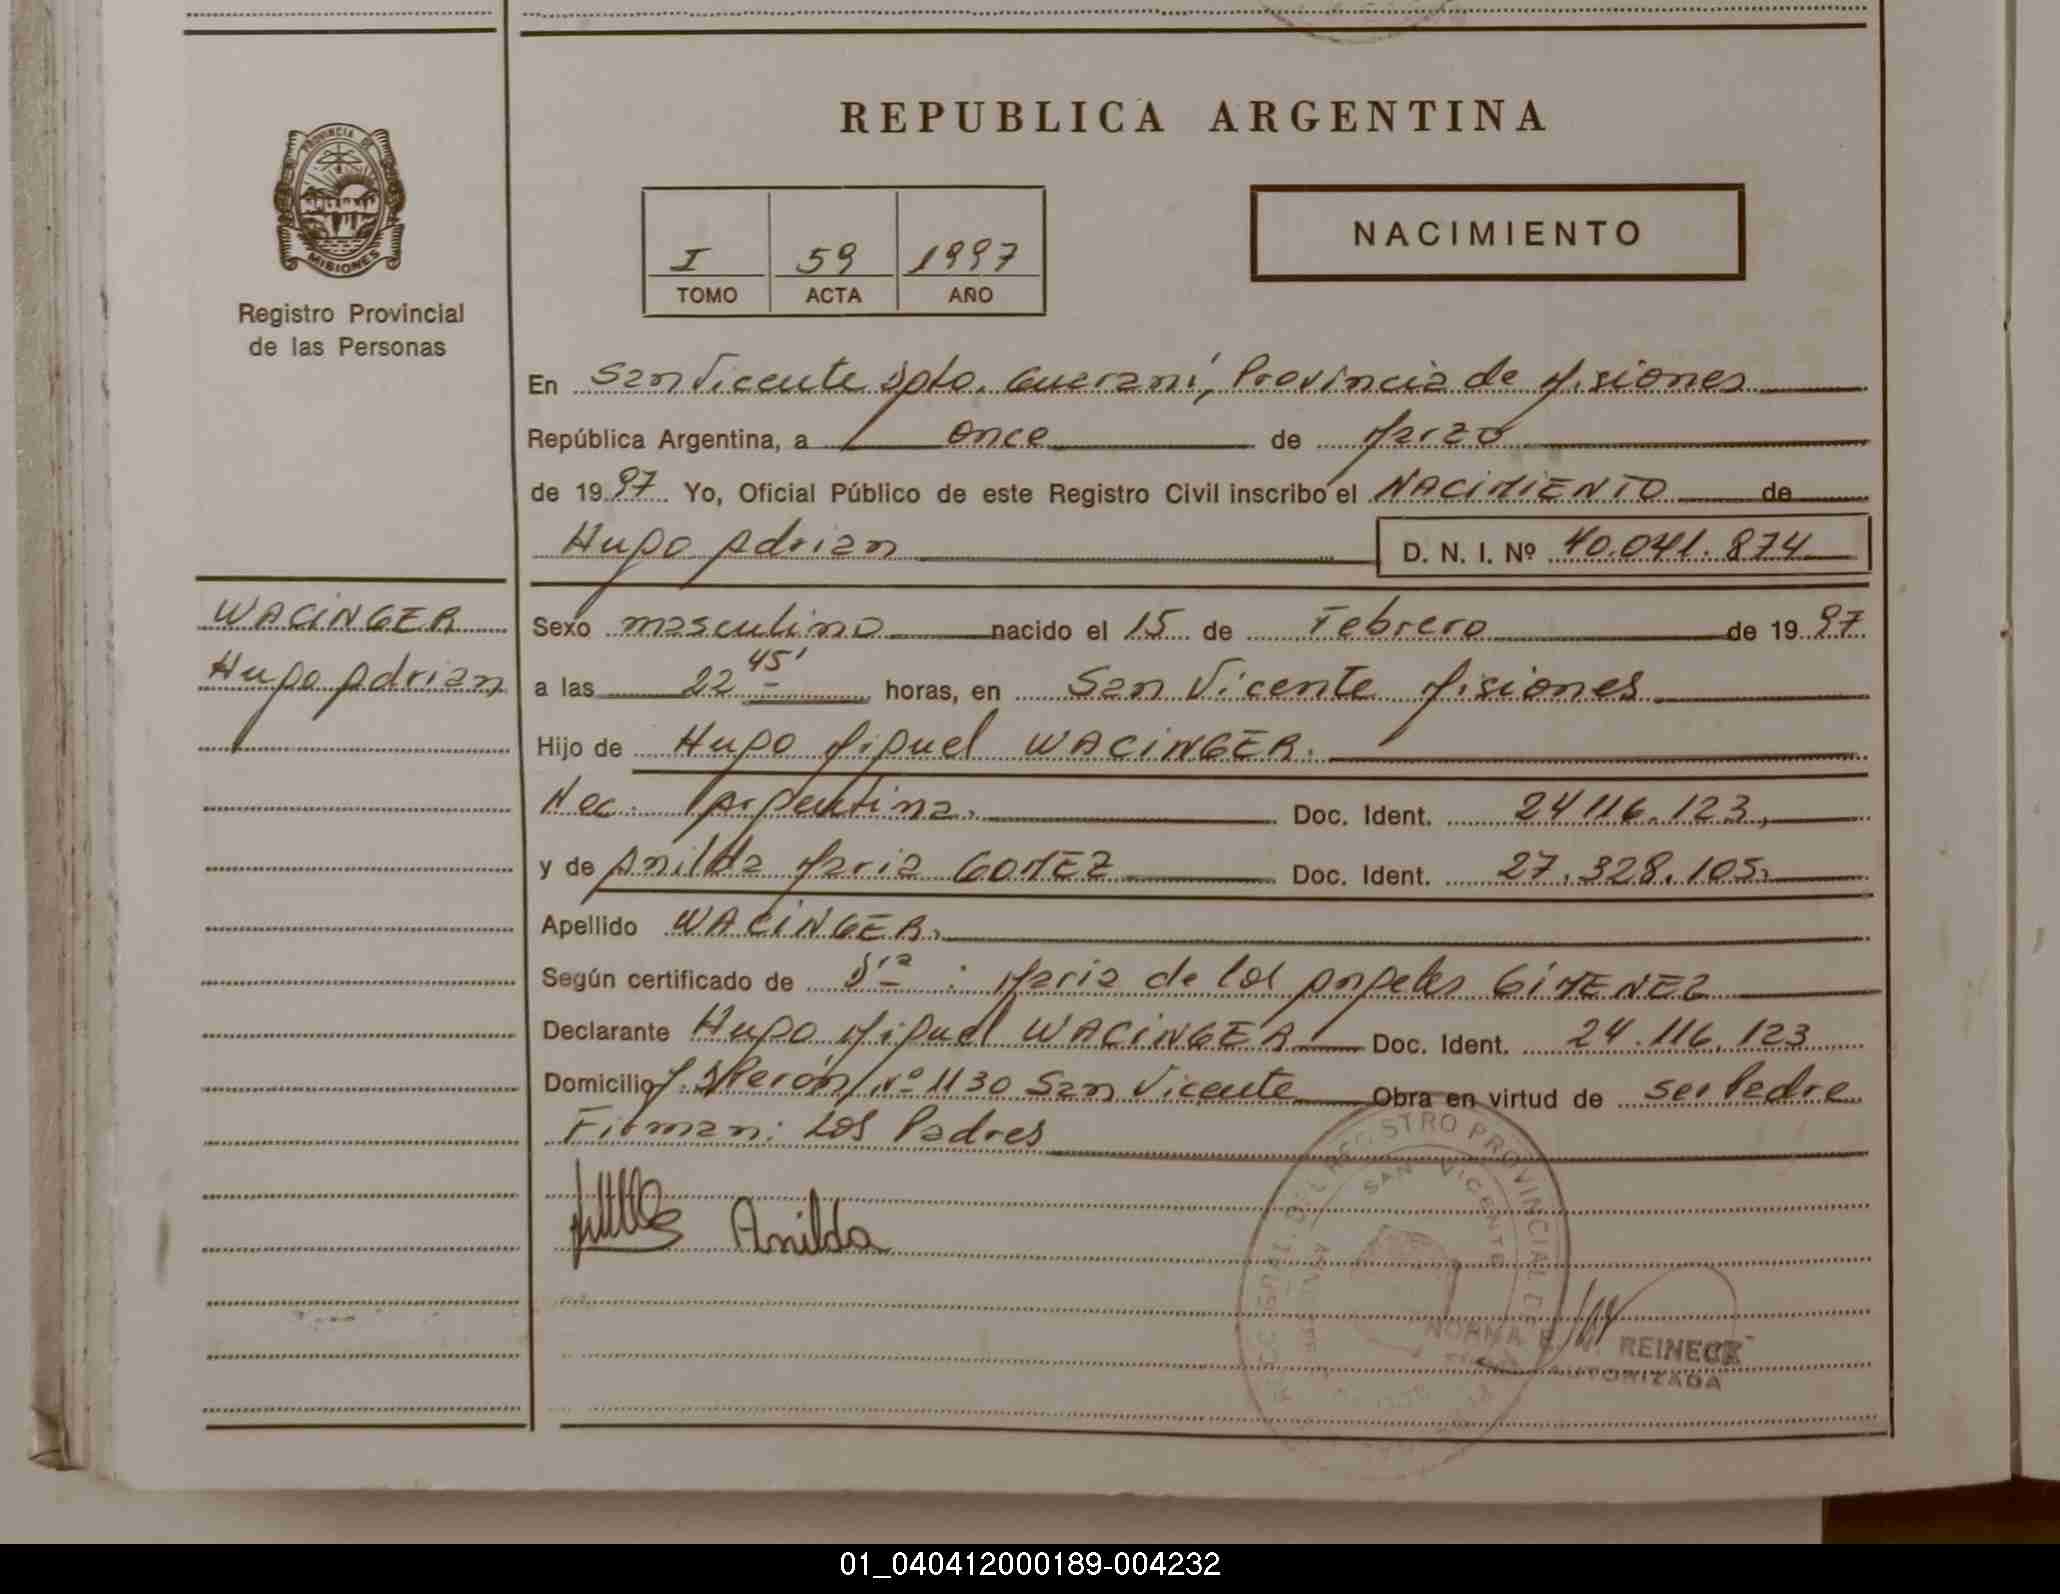 REPUBLICA ARGENTINA
PROVINCIA DE
MISIONES
Registro Provincial
de las Personas
I 59 1997
TOMO ACTA AÑO
NACIMIENTO
En San Vicente Dpto. Guaraní, Provincia de Misiones
República Argentina, a once de Marzo
de 19 97 Yo, Oficial Público de este Registro Civil inscribo el NACIMIENTO de
Hugo Adrian D. N. I. Nº 40.041.874
WACINGER
Hugo Adrian
Sexo masculino nacido el 15 de Febrero de 19 97
a las 22 45' horas, en San Vicente Misiones
Hijo de Hugo Miguel WACINGER.
Nac. Argentina. Doc. Ident. 24116.123,
y de Anilda Maria GOMEZ Doc. Ident. 27.328.105.
Apellido WACINGER.
Según certificado de Dra : Maria de los Angeles GIMENEZ
Declarante Hugo Miguel WACINGER Doc. Ident. 24.116.123
Domicilio Perón Nº 1130 San Vicente Obra en virtud de ser Padre
Firman: Los Padres
Anilda
REGISTRO PROVINCIAL DE
SAN VICENTE
NORMA REINECK
AUTORIZADA
01_040412000189-004232